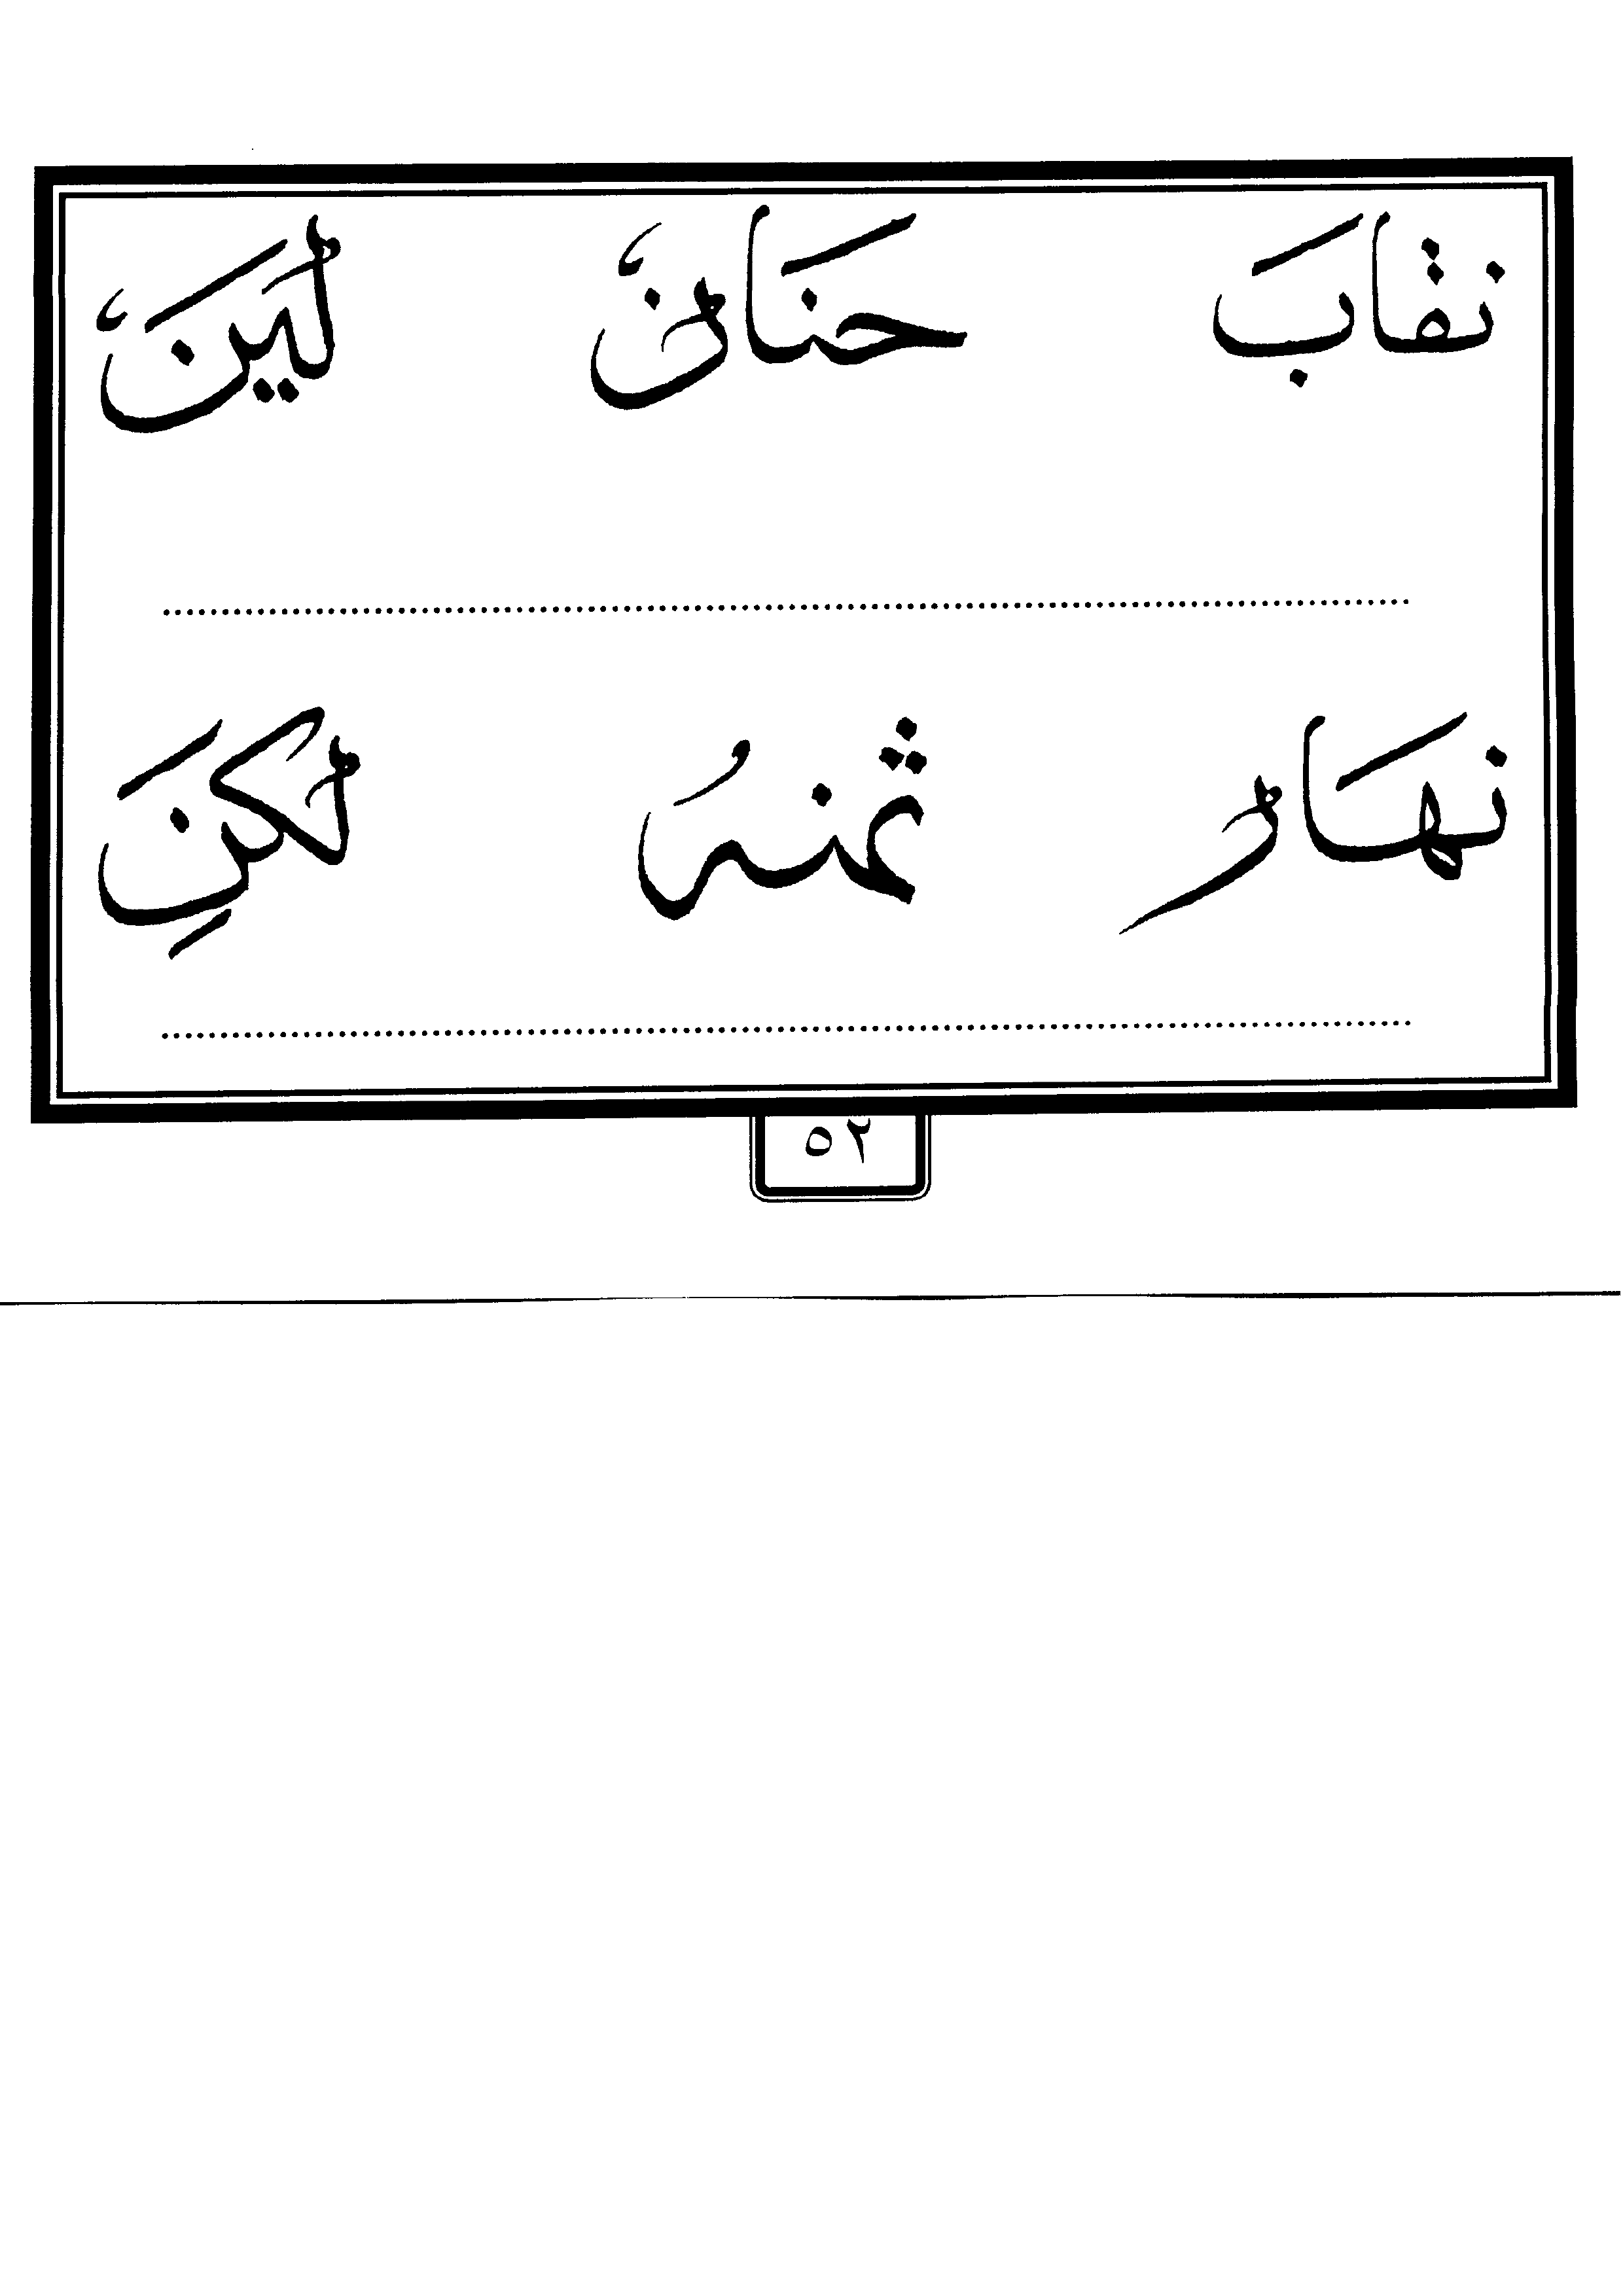 نقابَ حنَانٌ لَينَ
نهَارٌ ثمنهُ لكنِ
٥٢